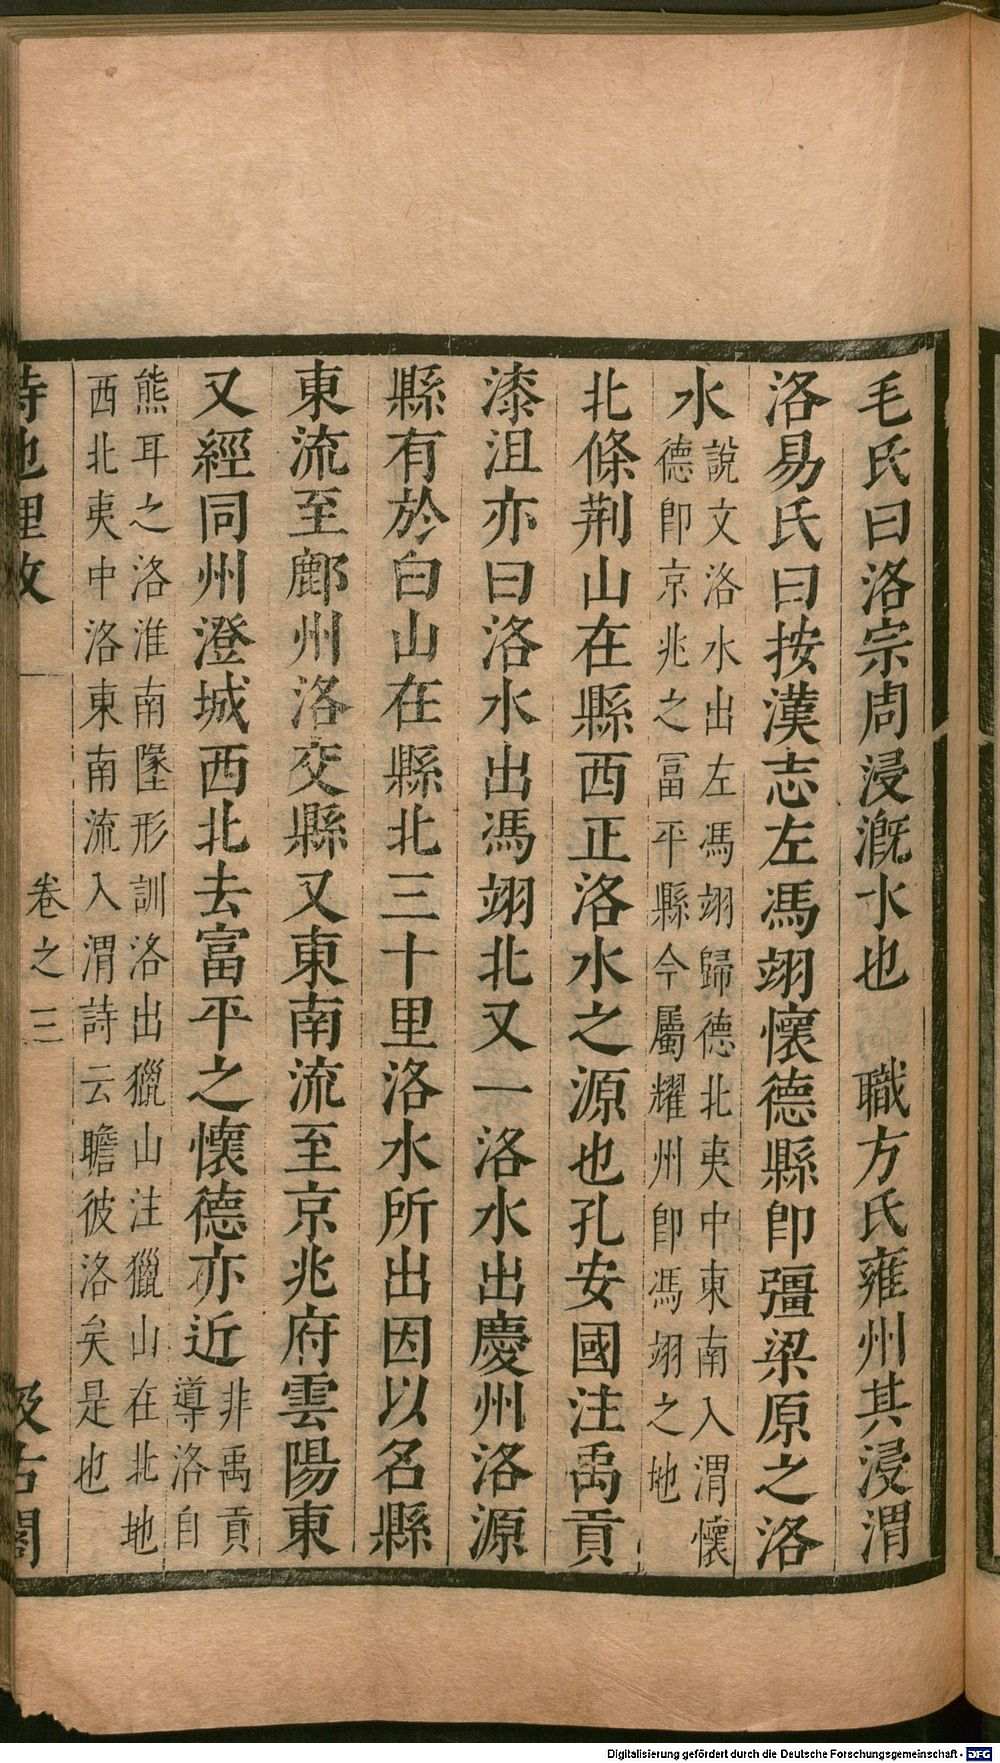 毛氏曰洛宗周浸漑水也　職方氏雍州其浸渭
洛易氏曰按漢志左馮翊懷德縣卽彊梁原之洛
水說文洛水出左馮翊歸德北夷中東南入渭懷
德卽京兆之富平縣今屬耀州卽馮翊之地
北條荆山在縣西正洛水之源也孔安國注禹貢
漆沮亦曰洛水出馮翊北又一洛水出慶州洛源
縣有於白山在縣北三十里洛水所出因以名縣
東流至鄜州洛交縣又東南流至京兆府雲陽東
又經同州澄城西北去富平之懷德亦近非禹貢
導洛自
熊耳之洛淮南墬形訓洛出獵山注獵山在北地
西北夷中洛東南流入渭詩云瞻彼洛矣是也
詩地理攷　卷之三　汲古閣
Digitalisierung gefördert durch die Deutsche Forschungsgemeinschaft - DFG